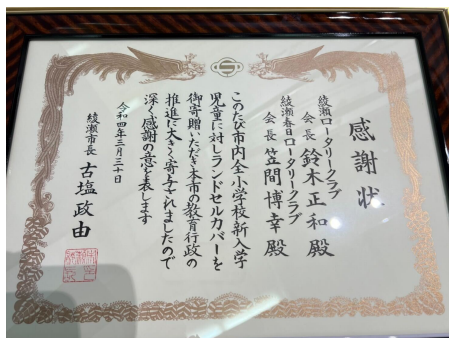 感謝状
綾瀬ロータリークラブ
会長 鈴木正和殿
綾瀬春日ロータリークラブ
会長 笠間博幸殿
このたび市内全小学校新入学
児童に対しランドセルカバーを
御寄贈いただき本市の教育行政の
推進に大きく寄与されましたので
深く感謝の意を表します
令和四年三月三十日
綾瀬市長 古塩政由